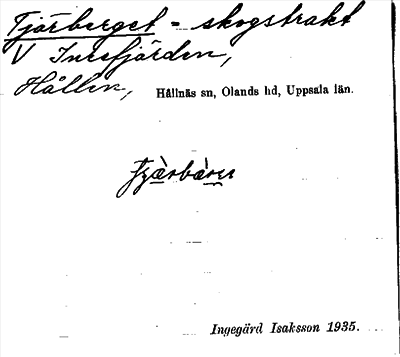 Tjärberget - skogstrakt
V Inrefjärden,
Hållen, Hållnäs sn, Olands hd, Uppsala län.
Ingegärd Isaksson 1935.